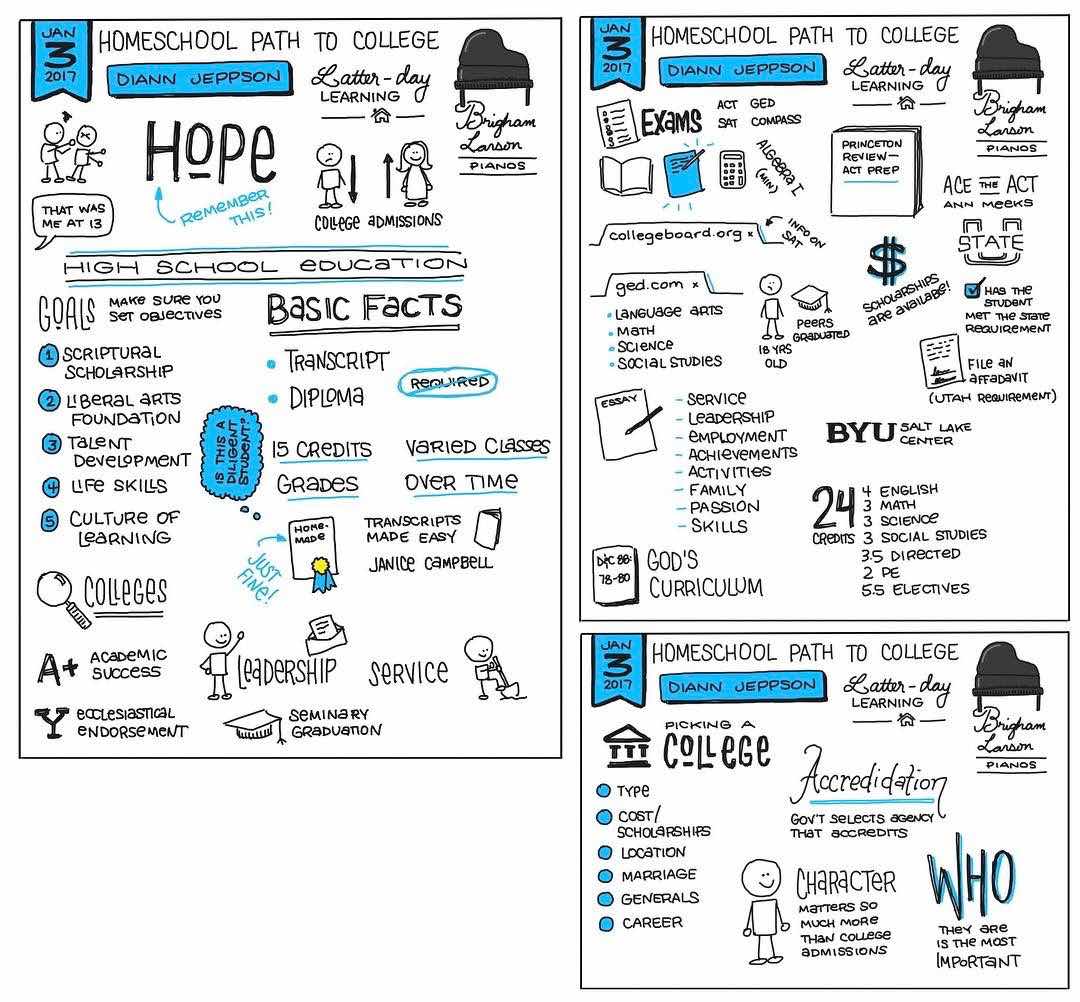 JAN
3
2017
HOMESCHOOL PATH TO COLLEGE
DIANN JEPPSON
Latter-day
LEARNING
Brigham
Larson
PIANOS
HOPE
REMEMBER
THIS!
THAT WAS
ME AT 13
COLLEGE ADMISSIONS
HIGH SCHOOL EDUCATION
GOALS
MAKE SURE YOU
SET OBJECTIVES
1 SCRIPTURAL
SCHOLARSHIP
2 LIBERAL ARTS
FOUNDATION
3 TALENT
DEVELOPMENT
4 LIFE SKILLS
5 CULTURE OF
LEARNING
BASIC FACTS
• TRANSCRIPT
• DIPLOMA
REQUIRED
IS THIS A
DILIGENT
STUDENT?
15 CREDITS
VARIED CLASSES
GRADES
OVER TIME
HOME-
MADE
JUST
FINE!
TRANSCRIPTS
MADE EASY
JANICE CAMPBELL
COLLEGES
A+ ACADEMIC
SUCCESS
LEADERSHIP
SERVICE
Y ECCLESIASTICAL
ENDORSEMENT
SEMINARY
GRADUATION
JAN
3
2017
HOMESCHOOL PATH TO COLLEGE
DIANN JEPPSON
Latter-day
LEARNING
Brigham
Larson
PIANOS
EXAMS
ACT GED
SAT COMPASS
ALGEBRA I
(MIN)
PRINCETON
REVIEW—
ACT PREP
ACE THE ACT
ANN MEEKS
collegeboard.org x
INFO ON
SAT
ged.com x
• LANGUAGE ARTS
• MATH
• SCIENCE
• SOCIAL STUDIES
18 YRS
OLD
PEERS
GRADUATED
$
SCHOLARSHIPS
ARE AVAILABLE!
STATE
HAS THE
STUDENT
MET THE STATE
REQUIREMENT
FILE AN
AFFADAVIT
(UTAH REQUIREMENT)
ESSAY
– SERVICE
– LEADERSHIP
– EMPLOYMENT
– ACHIEVEMENTS
– ACTIVITIES
– FAMILY
– PASSION
– SKILLS
BYU SALT LAKE
CENTER
24
CREDITS
4 ENGLISH
3 MATH
3 SCIENCE
3 SOCIAL STUDIES
3.5 DIRECTED
2 PE
5.5 ELECTIVES
D&C 88:
78-80
GOD'S
CURRICULUM
JAN
3
2017
HOMESCHOOL PATH TO COLLEGE
DIANN JEPPSON
Latter-day
LEARNING
Brigham
Larson
PIANOS
PICKING A
COLLEGE
TYPE
COST/
SCHOLARSHIPS
LOCATION
MARRIAGE
GENERALS
CAREER
Accredidation
GOV'T SELECTS AGENCY
THAT ACCREDITS
CHARACTER
MATTERS SO
MUCH MORE
THAN COLLEGE
ADMISSIONS
WHO
THEY ARE
IS THE MOST
IMPORTANT